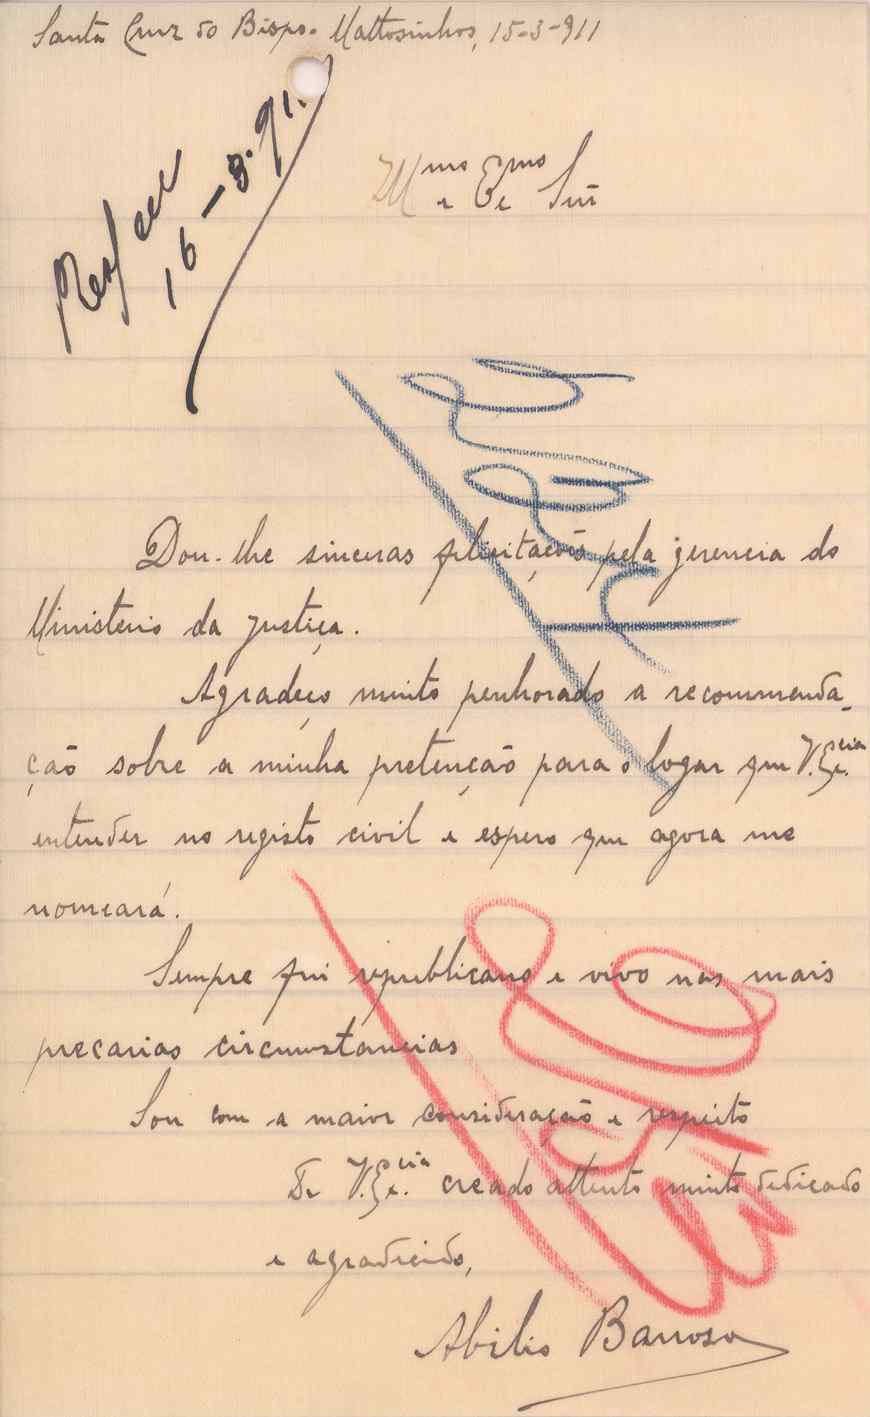 Santa Cruz do Bispo. Mattosinhos, 15-3-911
16-3-911
Illmo e Exmo Snr
Dou-lhe sinceras felicitações pela gerencia do
Ministerio da Justiça.
Agradeço muito penhorado a recommenda-
ção sobre a minha pretenção para o logar que V. Excia.
entender no registo civil e espero que agora me
nomeará.
Sempre fui republicano e vivo nas mais
precarias circumstancias
Sou com a maior consideração e respeito
De V. Excia. creado attento muito dedicado
e agradecido,
Abilio Barroso